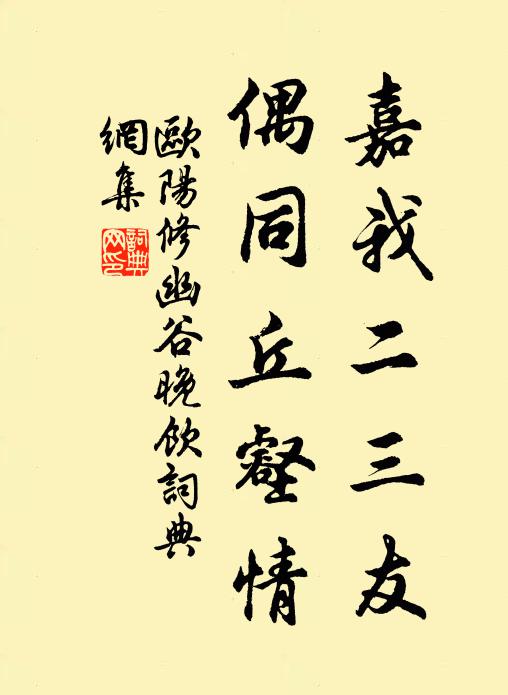 嘉我二三友
偶同丘壑情
歐陽修幽谷晚飲詞典
網集
詞典
网印